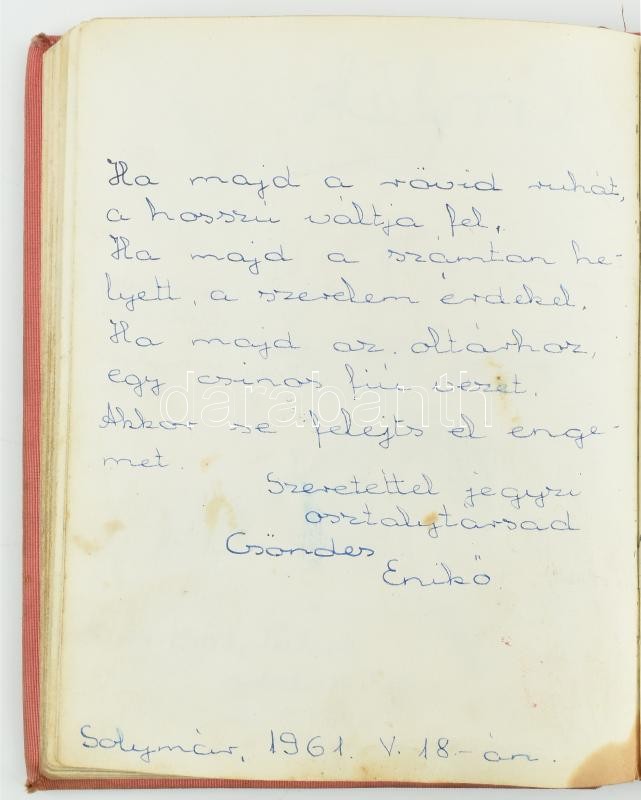 Ha majd a rövid ruhát,
a hosszú váltja fel,
Ha majd a számtan he-
lyett, a szerelem érdekel,
Ha majd az oltárhoz,
egy csinos fiú vezet.
Akkor se felejts el enge-
met.
Szeretettel jegyzi
osztálytársad
Csöndes
Enikő
Solymár, 1961. V. 18.-án.
darabanth